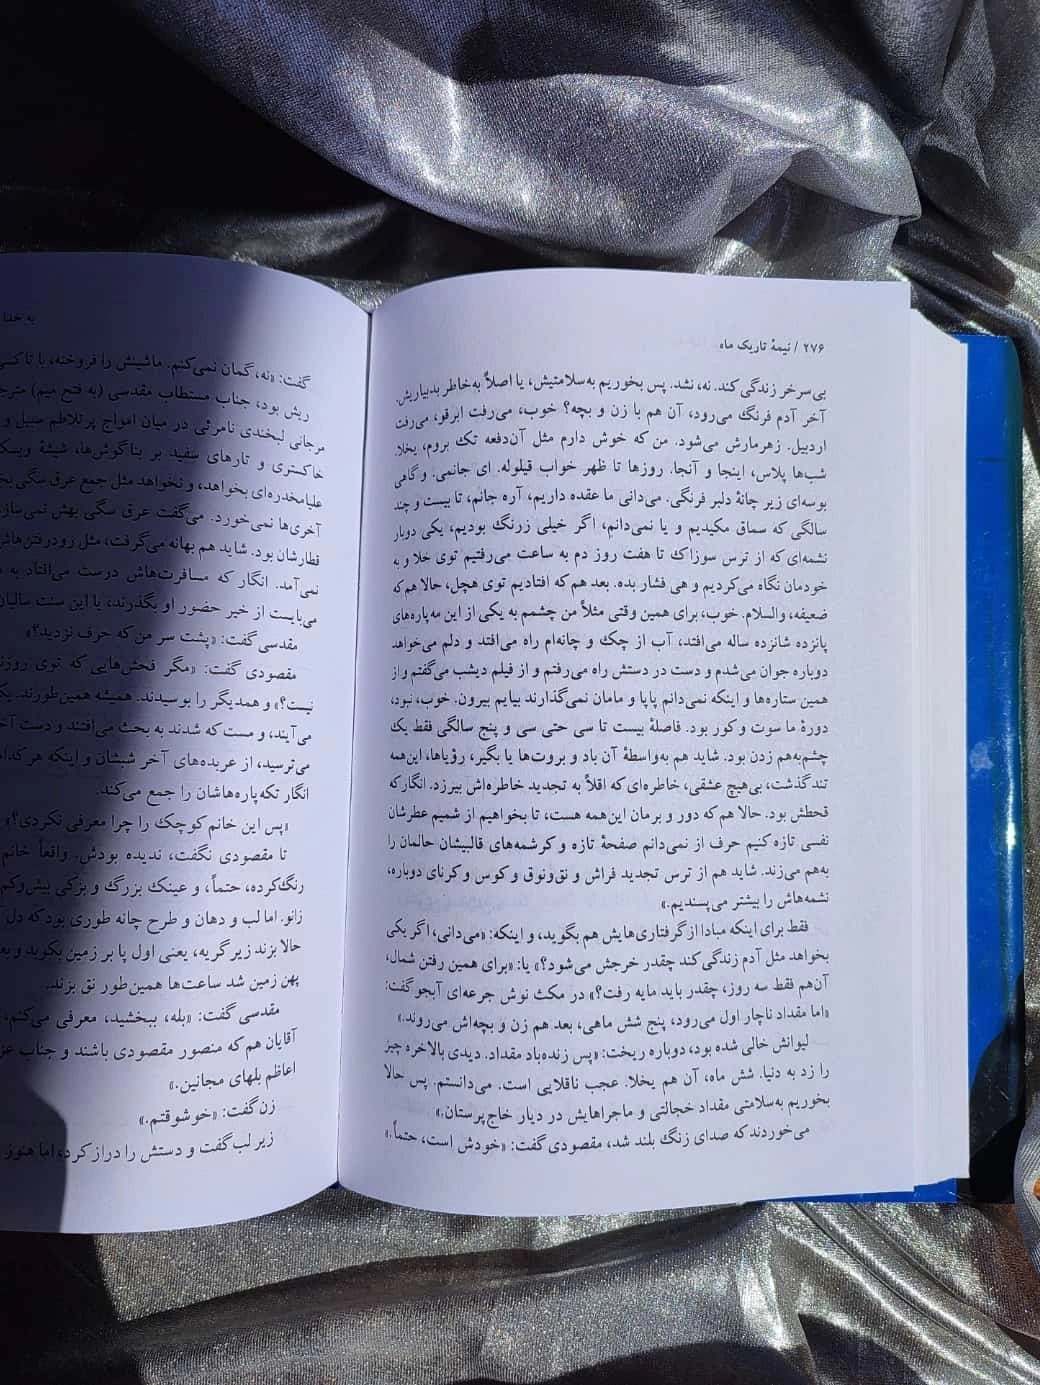 ۲۷۶ / نیمهٔ تاریک ماه
بی‌سرخر زندگی کند. نه، نشد. پس بخوریم به‌سلامتیش، یا اصلاً به‌خاطر بدبیاریش.
آخر آدم فرنگ می‌رود، آن هم با زن و بچه؟ خوب، می‌رفت ابرقو، می‌رفت
اردبیل. زهرمارش می‌شود. من که خوش دارم مثل آن‌دفعه تک بروم، یخلا.
شب‌ها پلاس، اینجا و آنجا. روزها تا ظهر خواب قیلوله. ای جانمی. و گاهی
بوسه‌ای زیر چانهٔ دلبر فرنگی. می‌دانی ما عقده داریم، آره جانم، تا بیست و چند
سالگی که سماق مکیدیم و یا نمی‌دانم، اگر خیلی زرنگ بودیم، یکی دوبار
نشمه‌ای که از ترس سوزاک تا هفت روز دم به ساعت می‌رفتیم توی خلا و به
خودمان نگاه می‌کردیم و هی فشار بده. بعد هم که افتادیم توی هچل، حالا هم که
ضعیفه، والسلام. خوب، برای همین وقتی مثلاً من چشمم به یکی از این مه‌پاره‌های
پانزده شانزده ساله می‌افتد، آب از چک و چانه‌ام راه می‌افتد و دلم می‌خواهد
دوباره جوان می‌شدم و دست در دستش راه می‌رفتم و از فیلم دیشب می‌گفتم و از
همین ستاره‌ها و اینکه نمی‌دانم پاپا و مامان نمی‌گذارند بیایم بیرون. خوب، نبود،
دورهٔ ما سوت و کور بود. فاصلهٔ بیست تا سی حتی سی و پنج سالگی فقط یک
چشم‌به‌هم زدن بود. شاید هم به‌واسطهٔ آن باد و بروت‌ها یا بگیر، رؤیاها، این‌همه
تند گذشت، بی‌هیچ عشقی، خاطره‌ای که اقلاً به تجدید خاطره‌اش بیرزد. انگار که
قحطش بود. حالا هم که دور و برمان این‌همه هست، تا بخواهیم از شمیم عطرشان
نفسی تازه کنیم حرف از نمی‌دانم صفحهٔ تازه و کرشمه‌های قالبیشان حالمان را
به‌هم می‌زند. شاید هم از ترس تجدید فراش و نق‌ونوق و کوس و کرنای دوباره،
نشمه‌هاش را بیشتر می‌پسندیم.»
فقط برای اینکه مبادا از گرفتاری‌هایش هم بگوید، و اینکه: «می‌دانی، اگر یکی
بخواهد مثل آدم زندگی کند چقدر خرجش می‌شود؟» یا: «برای همین رفتن شمال،
آن‌هم فقط سه روز، چقدر باید مایه رفت؟» در مکث نوش جرعه‌ای آبجو گفت:
«اما مقداد ناچار اول می‌رود، پنج شش ماهی، بعد هم زن و بچه‌اش می‌روند.»
لیوانش خالی شده بود، دوباره ریخت: «پس زنده‌باد مقداد. دیدی بالاخره چیز
را زد به دنیا. شش ماه، آن هم یخلا. عجب ناقلایی است. می‌دانستم. پس حالا
بخوریم به‌سلامتی مقداد خجالتی و ماجراهایش در دیار خاج‌پرستان.»
می‌خوردند که صدای زنگ بلند شد، مقصودی گفت: «خودش است، حتماً.»
به خدا
گفت: «نه، گمان نمی‌کنم. ماشینش را فروخته، با تاکسی
ریش بود، جناب مستطاب مقدسی (به فتح میم) مترج
مرجانی لبخندی نامرئی در میان امواج پرتلاطم سبیل و
خاکستری و تارهای سفید بر بناگوش‌ها، شیشهٔ ویسک
علیامخدره‌ای بخواهد، و نخواهد مثل جمع عرق سگی بخ
آخری‌ها نمی‌خورد. می‌گفت عرق سگی بهش نمی‌ساز
قطارشان بود. شاید هم بهانه می‌گرفت، مثل زودرفتن‌هاش
نمی‌آمد. انگار که مسافرت‌هاش درست می‌افتاد به
می‌بایست از خیر حضور او بگذرند، یا این سنت سالیان
مقدسی گفت: «پشت سر من که حرف نزدید؟»
مقصودی گفت: «مگر فحش‌هایی که توی روزن
نیست؟» و همدیگر را بوسیدند. همیشه همین‌طورند. یک
می‌آیند، و مست که شدند به بحث می‌افتند و دست آخ
می‌ترسید، از عربده‌های آخر شبشان و اینکه هر کدا
انگار تکه‌پاره‌هاشان را جمع می‌کند.
«پس این خانم کوچک را چرا معرفی نکردی؟»
تا مقصودی نگفت، ندیده بودش. واقعاً خانم
رنگ‌کرده، حتماً، و عینک بزرگ و بزکی بیش‌وکم
زانو. اما لب و دهان و طرح چانه طوری بود که دل
حالا بزند زیر گریه، یعنی اول پا بر زمین بکوبد و بعد
پهن زمین شد ساعت‌ها همین‌طور نق بزند.
مقدسی گفت: «بله، ببخشید، معرفی می‌کنم،
آقایان هم که منصور مقصودی باشند و جناب عز
اعاظم بلهای مجانین.»
زن گفت: «خوشوقتم.»
زیر لب گفت و دستش را دراز کرد، اما هنوز